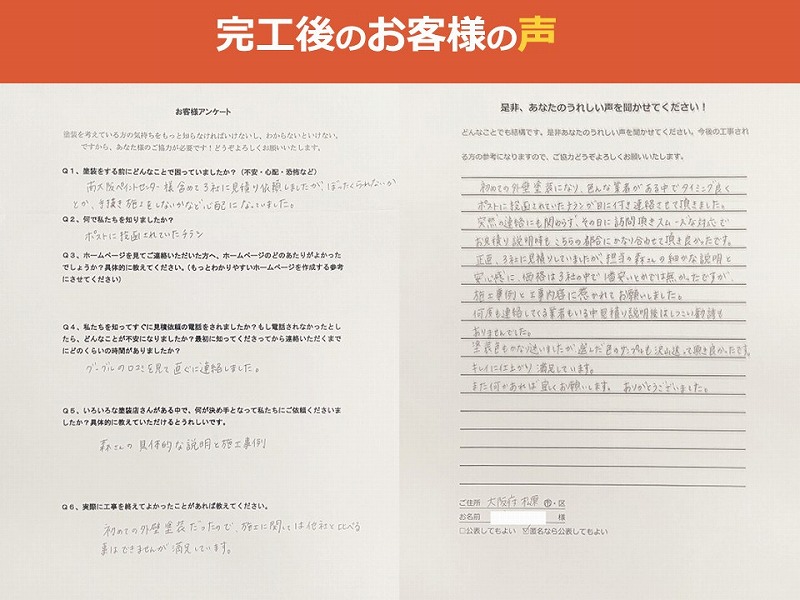 完工後のお客様の声
お客様アンケート
塗装を考えている方の気持ちをもっと知らなければいけないし、わからないといけない。
ですから、あなた様のご協力が必要です！どうぞよろしくお願いいたします。
Q1、塗装をする前にどんなことで困っていましたか？（不安・心配・恐怖など）
南大阪ペイントセンター様含めて3社に見積り依頼しましたが、ぼったくられないか
とか、手抜き施工をしないかなど、心配になっていました。
Q2、何で私たちを知りましたか？
ポストに投函されていたチラシ
Q3、ホームページを見てご連絡いただいた方へ、ホームページのどのあたりがよかった
でしょうか？具体的に教えてください。（もっとわかりやすいホームページを作成する参考
にさせてください）
Q4、私たちを知ってすぐに見積依頼の電話をされましたか？もし電話されなかったとし
たら、どんなことが不安になりましたか？最初に知ってくださってから連絡いただくまで
にどのくらいの時間がありましたか？
グーグルの口コミを見て直ぐに連絡しました。
Q5、いろいろな塗装店さんがある中で、何が決め手となって私たちにご依頼くださいま
したか？具体的に教えていただけるとうれしいです。
森さんの具体的な説明と施工事例
Q6、実際に工事を終えてよかったことがあれば教えてください。
初めての外壁塗装だったので、施工に関しては他社と比べる
事はできませんが満足しています。
是非、あなたのうれしい声を聞かせてください！
どんなことでも結構です。是非あなたのうれしい声を聞かせてください。今後の工事され
る方の参考になりますので、ご協力どうぞよろしくお願いいたします。
初めての外壁塗装になり、色んな業者がある中でタイミング良く
ポストに投函されていたチラシが目に付き連絡させて頂きました。
突然の連絡にも関わらず、その日に訪問頂きスムーズな対応で
お見積り説明時もこちらの都合にかなり合わせて頂き良かったです。
正直、3社に見積りしていましたが、担当の森さんの細かな説明と
安心感に、価格は3社の中で1番安いとかでは無かったですが、
施工事例と工事内容に惹かれてお願いしました。
何度も連絡してくる業者もいる中見積り説明後はしつこい勧誘も
ありませんでした。
塗装色もかなり迷いましたが、選んだ色のサンプルも沢山送って頂き良かったです。
キレイに仕上がり満足しています。
また何かあれば宜しくお願いします。ありがとうございました。
ご住所 大阪府松原市・区
お名前 様
□公表してもよい ☑匿名なら公表してもよい